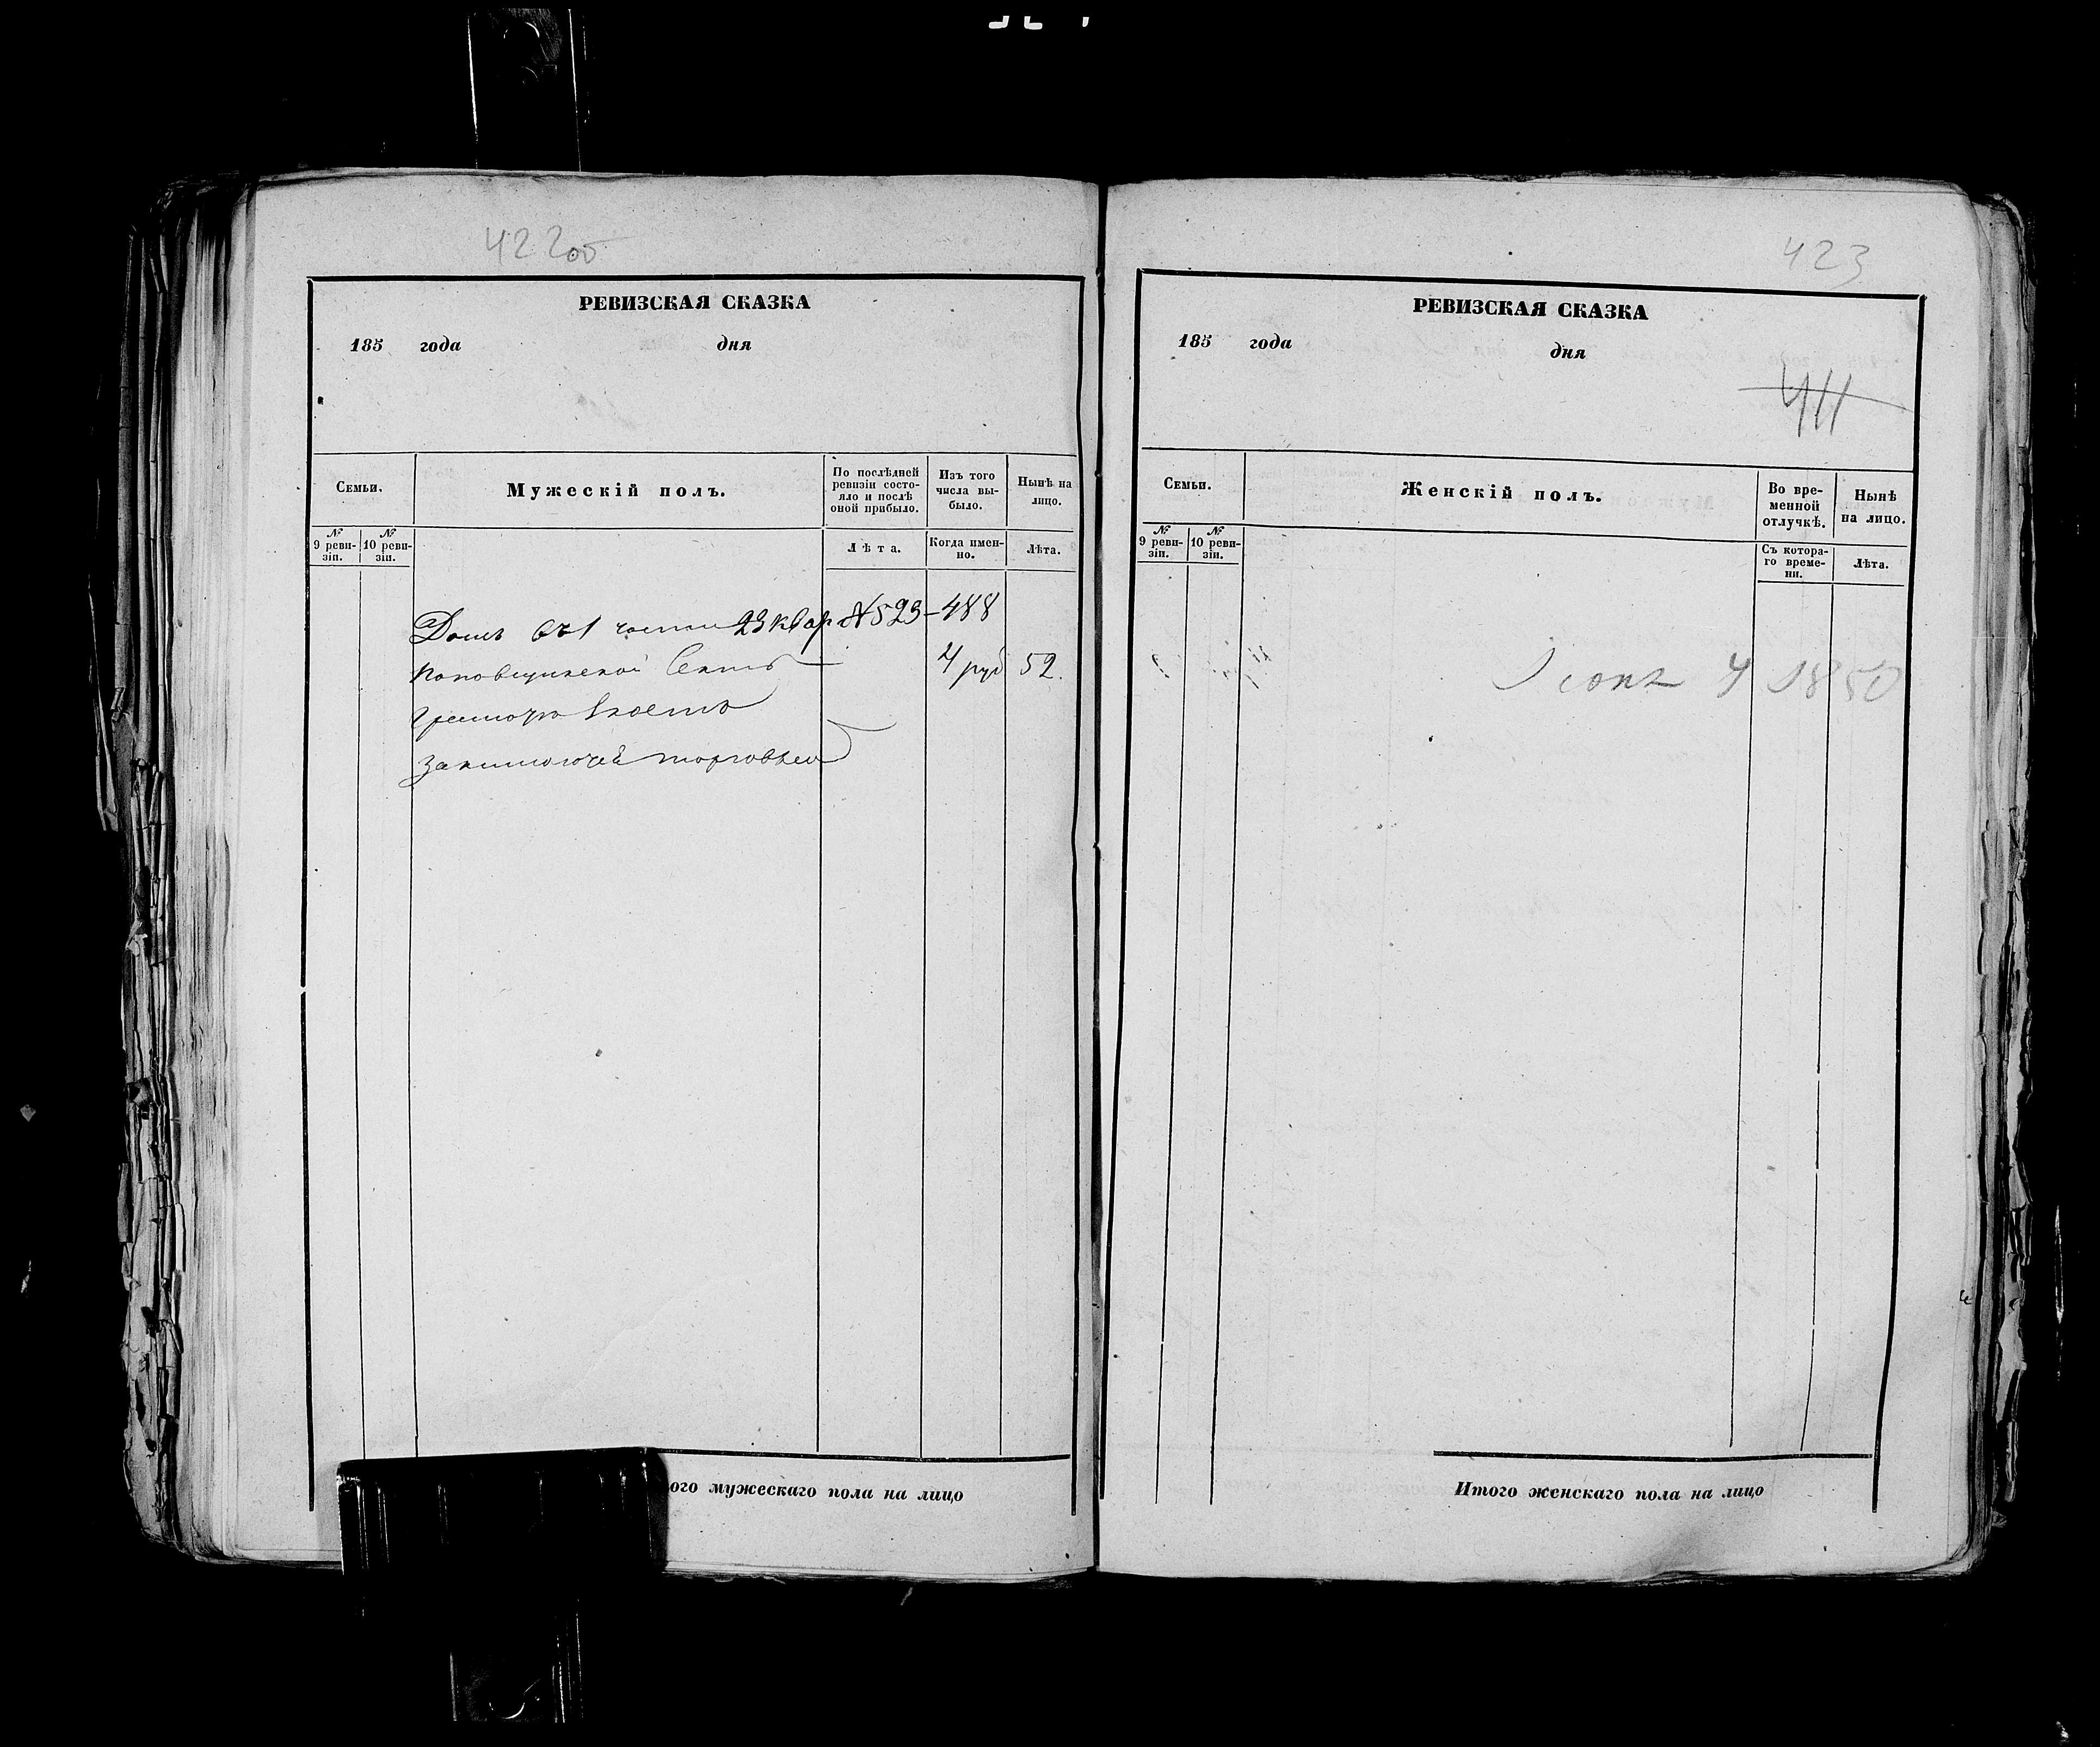 422об
РЕВИЗСКАЯ СКАЗКА
185 года дня
Семьи.
Мужескій полъ.
По послѣдней ревизіи состо-
яло и послѣ
оной прибыло.
Изъ того
числа вы-
было.
Нынѣ на
лицо.
№
9 реви-
зіи.
№
10 реви-
зіи.
Лѣта.
Когда имен-
но.
Лѣта.
Домъ въ 1 части 23 квар № 523-488
поповщинской секты 4 руб 52.
грамотѣ знаетъ
занимается торговлею
ого мужескаго пола на лицо
423
РЕВИЗСКАЯ СКАЗКА
185 года дня
411
Семьи.
Женскій полъ.
Во вре-
менной
отлучкѣ.
Нынѣ
на лицо.
№
9 реви-
зіи.
№
10 реви-
зіи.
Съ котора-
го време-
ни.
Лѣта.
4 1850
Итого женскаго пола на лицо